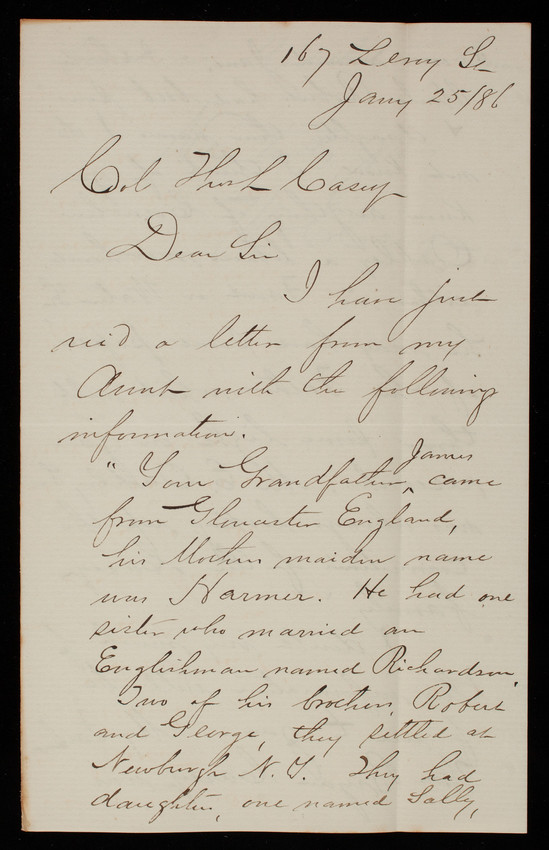 167 Leroy St
Jany 25/86
Col Thos L Casey
Dear Sir
I have just
rec'd a letter from my
Aunt with the following
information.
"Your Grandfather, James
came
from Gloucester England,
his Mothers maiden name
was Harmer. He had one
sister who married an
Englishman named Richardson.
Two of his brothers, Robert
and George, they settled at
Newburgh N.Y. They had
daughters, one named Sally,